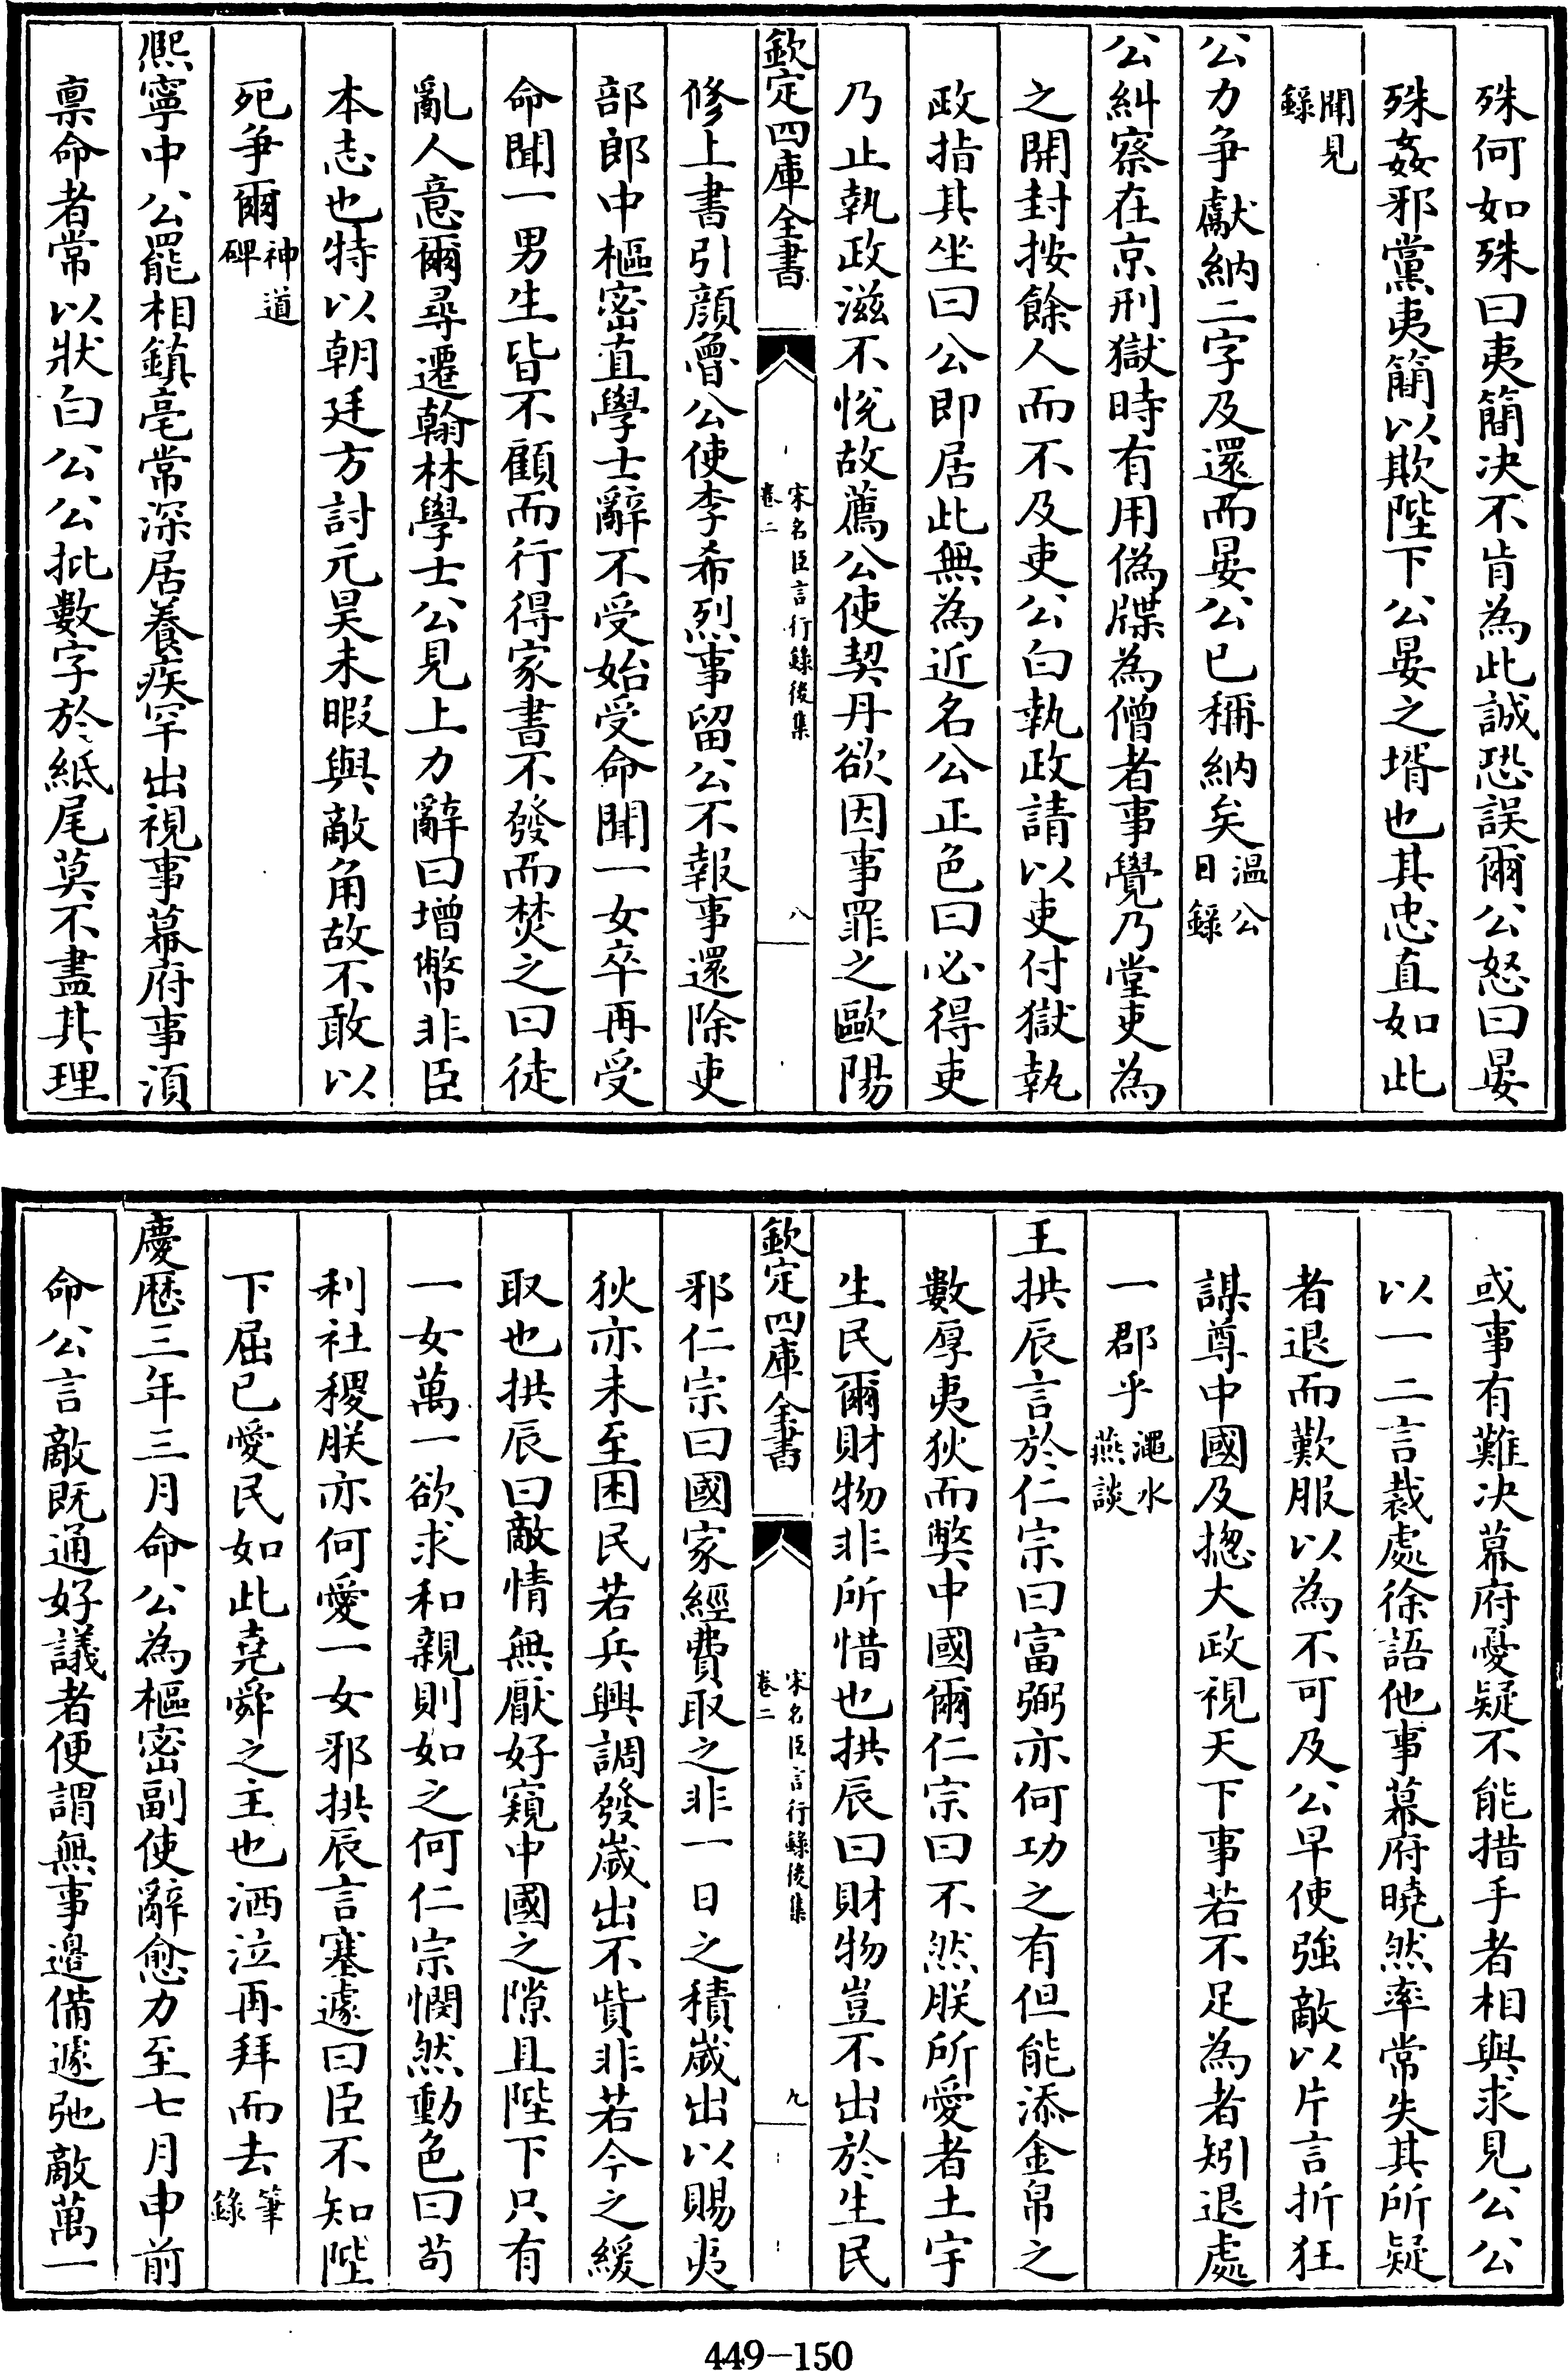 殊何如殊曰夷簡决不肯為此誠恐誤爾公怒曰晏
殊姦邪黨夷簡以欺陛下公晏之壻也其忠直如此
聞見
錄
公力争獻納二字及還而晏公已稱納矣温公
日錄
公糾察在京刑獄時有用偽牒為僧者事覺乃堂吏為
之開封按餘人而不及吏公白執政請以吏付獄執
政指其坐曰公即居此無為近名公正色曰必得吏
乃止執政滋不悅故薦公使契丹欲因事罪之歐陽
欽定四庫全書
宋名臣言行錄後集
卷二
八
修上書引顔魯公使李希烈事留公不報事還除吏
部郎中樞密直學士辭不受始受命聞一女卒再受
命聞一男生皆不顧而行得家書不發而焚之曰徒
亂人意爾尋遷翰林學士公見上力辭曰增幣非臣
本志也特以朝廷方討元昊未暇與敵角故不敢以
死争爾神道
碑
熙寧中公罷相鎮亳常深居養疾罕出視事幕府事湏
禀命者常以狀白公公批數字於紙尾莫不盡其理
或事有難决幕府憂疑不能措手者相與求見公公
以一二言裁處徐語他事幕府曉然率常失其所疑
者退而歎服以為不可及公早使強敵以片言折狂
謀尊中國及揔大政視天下事若不足為者矧退處
一郡乎澠水
燕談
王拱辰言於仁宗曰富弼亦何功之有但能添金帛之
數厚夷狄而獘中國爾仁宗曰不然朕所愛者土宇
生民爾財物非所惜也拱辰曰財物豈不出於生民
欽定四庫全書
宋名臣言行錄後集
卷二
九
邪仁宗曰國家經費取之非一日之積歲出以賜夷
狄亦未至困民若兵興調發歲出不貲非若今之緩
取也拱辰曰敵情無厭好窺中國之隙且陛下只有
一女萬一欲求和親則如之何仁宗憫然動色曰苟
利社稷朕亦何愛一女邪拱辰言塞遽曰臣不知陛
下屈已愛民如此堯舜之主也洒泣再拜而去筆
錄
慶厯三年三月命公為樞密副使辭愈力至七月申前
命公言敵既通好議者便謂無事邉備遽弛敵萬一
449-150